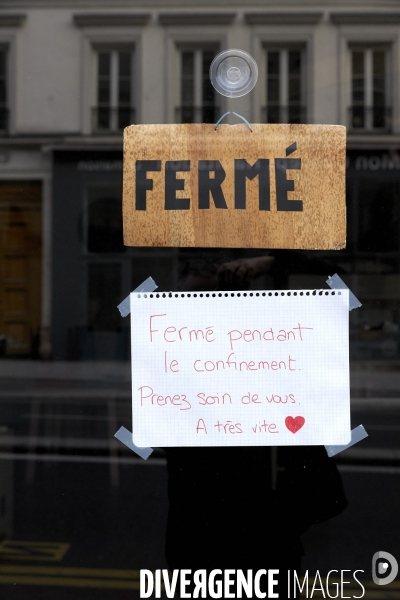 FERMÉ
Fermé pendant
le confinement.
Prenez soin de vous.
A très vite
DIVERGENCE IMAGES